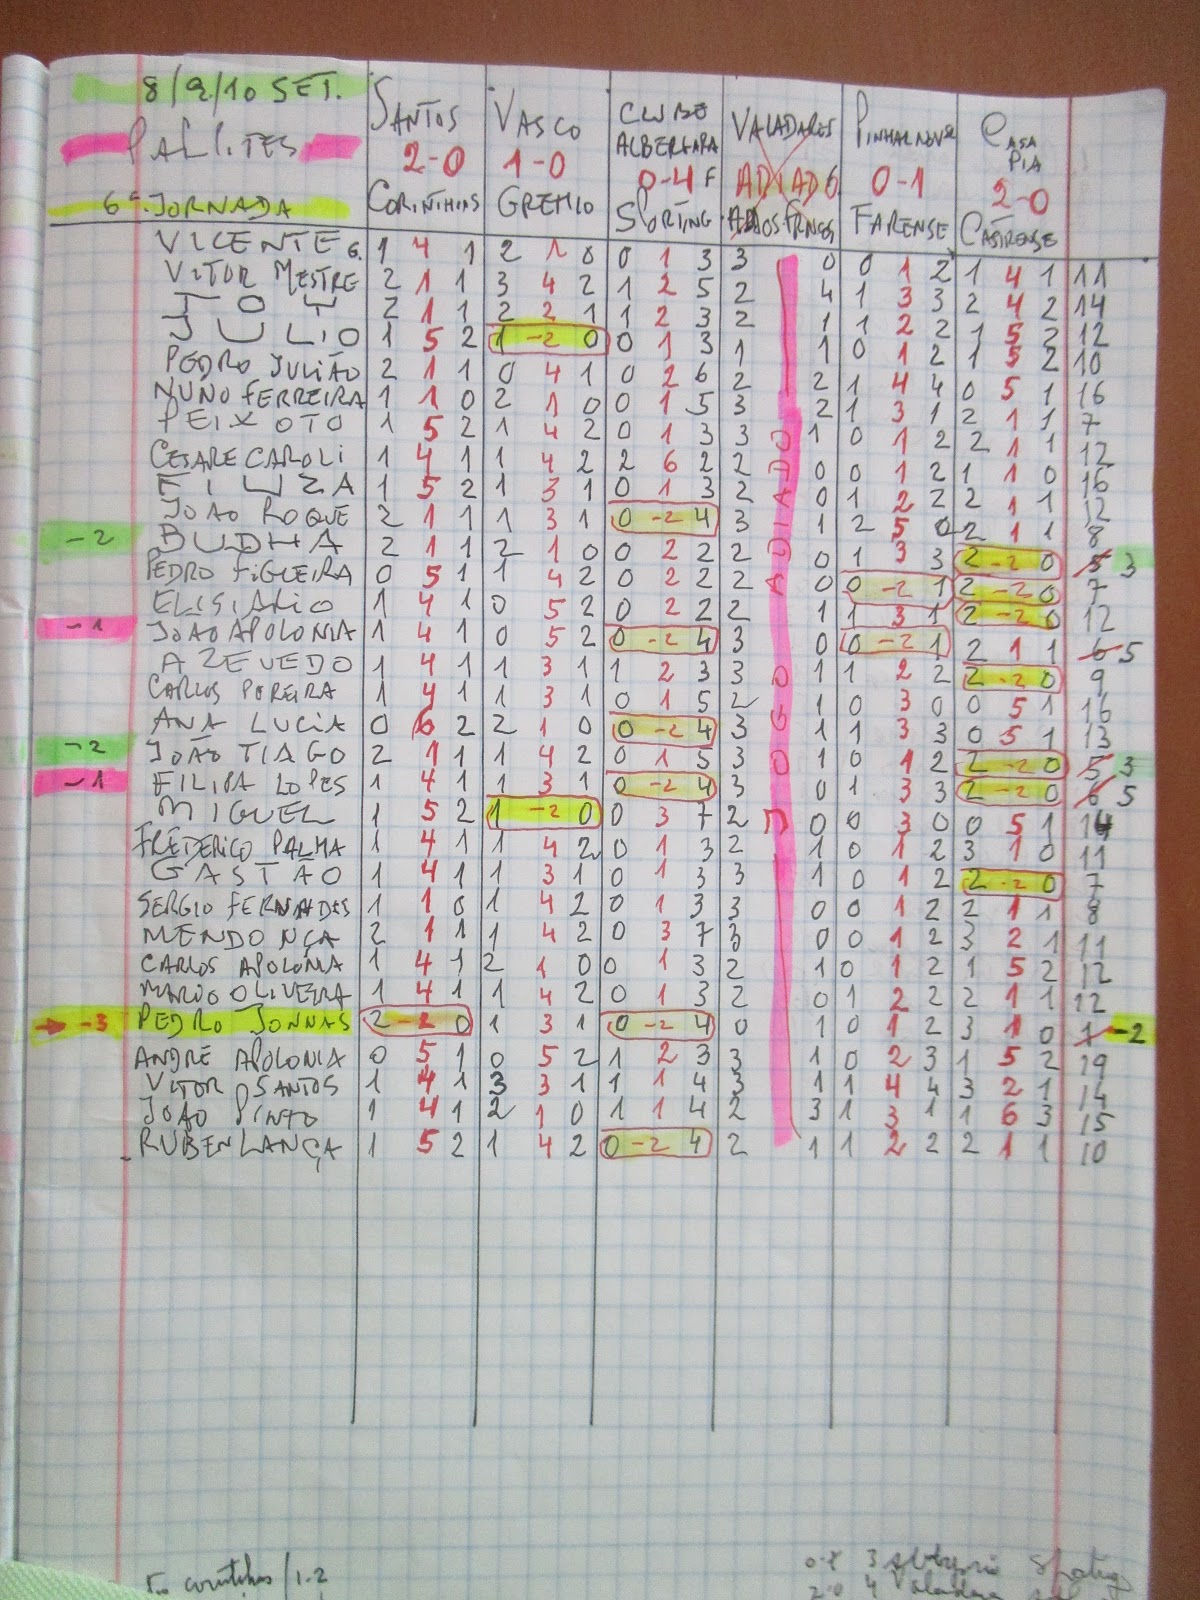 8/9/10 SET.
PALPITES
6ª JORNADA
SANTOS 2-0 CORINTHIAS
VASCO 1-0 GREMIO
CLUBE ALBERGARIA 0-4 F SPORTING
VALADARES ADIADO
PINHALNOVE 0-1 FARENSE
CASA PIA 2-0 CASTRENSE
VICENTE G. 1 4 1 2 1 0 0 1 3 3 0 0 1 2 1 4 1 11
VITOR MESTRE 2 1 1 3 4 2 1 2 5 2 4 1 3 3 2 4 2 14
JOY 2 1 1 2 2 1 1 2 3 2 1 1 2 2 1 5 2 12
JULIO 1 5 2 1 -2 0 0 1 3 1 1 0 1 2 1 5 2 10
PEDRO JULIÃO 2 1 1 0 4 1 0 2 6 2 2 1 4 4 0 5 1 16
NUNO FERREIRA 1 1 0 2 1 0 0 1 5 3 2 1 3 1 2 1 1 7
PEIXOTO 1 5 2 1 4 2 0 1 3 3 1 0 1 2 2 1 1 12
CESARE CAROLI 1 4 1 1 4 2 2 6 2 2 0 0 1 2 1 1 0 16
FIUZA 1 5 2 1 3 1 0 1 3 2 0 1 2 2 2 1 1 12
JOÃO ROQUE 2 1 1 1 3 1 0 -2 4 3 1 2 5 0 2 1 1 8
-2 BUDHA 2 1 1 2 1 0 0 2 2 2 0 1 3 3 2 -2 0 5 3
PEDRO FIGUEIRA 0 5 1 1 4 2 0 2 2 2 0 0 -2 1 2 -2 0 7
ELISIARIO 1 4 1 0 5 2 0 2 2 2 1 1 3 1 2 -2 0 12
-1 JOÃO APOLONIA 1 4 1 0 5 2 0 -2 4 3 0 0 -2 1 2 1 1 6 5
AZEVEDO 1 4 1 1 3 1 1 2 3 3 1 1 2 2 2 -2 0 9
CARLOS PEREIRA 1 4 1 1 3 1 0 1 5 2 1 0 3 0 0 5 1 16
ANA LUCIA 0 6 2 2 1 0 0 -2 4 3 1 1 3 3 0 5 1 13
-2 JOÃO TIAGO 2 1 1 1 4 2 0 1 5 3 1 0 1 2 2 -2 0 5 3
-1 FILIPA LOPES 1 4 1 1 3 1 0 -2 4 3 0 1 3 3 2 -2 0 6 5
MIGUEL 1 5 2 1 -2 0 0 3 7 2 0 0 3 0 0 5 1 14
FREDERICO PALMA 1 4 1 1 4 2 0 1 3 2 1 0 1 2 3 1 0 11
GASTÃO 1 4 1 1 3 1 0 1 3 3 1 0 1 2 2 -2 0 7
SERGIO FERNANDES 1 1 0 1 4 2 0 1 3 3 0 0 1 2 2 1 1 8
MENDONÇA 2 1 1 1 4 2 0 3 7 3 0 0 1 2 3 2 1 11
CARLOS APOLONIA 1 4 1 2 1 0 0 1 3 2 1 0 1 2 1 5 2 12
MARIO OLIVEIRA 1 4 1 1 4 2 0 1 3 2 0 1 2 2 2 1 1 12
→ -3 PEDRO JONNAS 2 -2 0 1 3 1 0 -2 4 0 1 0 1 2 3 1 0 1 -2
ANDRE APOLONIA 0 5 1 0 5 2 1 2 3 3 1 0 2 3 1 5 2 19
VITOR SANTOS 1 4 1 3 3 1 1 1 4 3 1 1 4 4 3 2 1 14
JOÃO PINTO 1 4 1 2 1 0 1 1 4 2 3 1 3 1 1 6 3 15
RUBEN LANÇA 1 5 2 1 4 2 0 -2 4 2 1 1 2 2 2 1 1 10
JOGO ADIADO
1-2